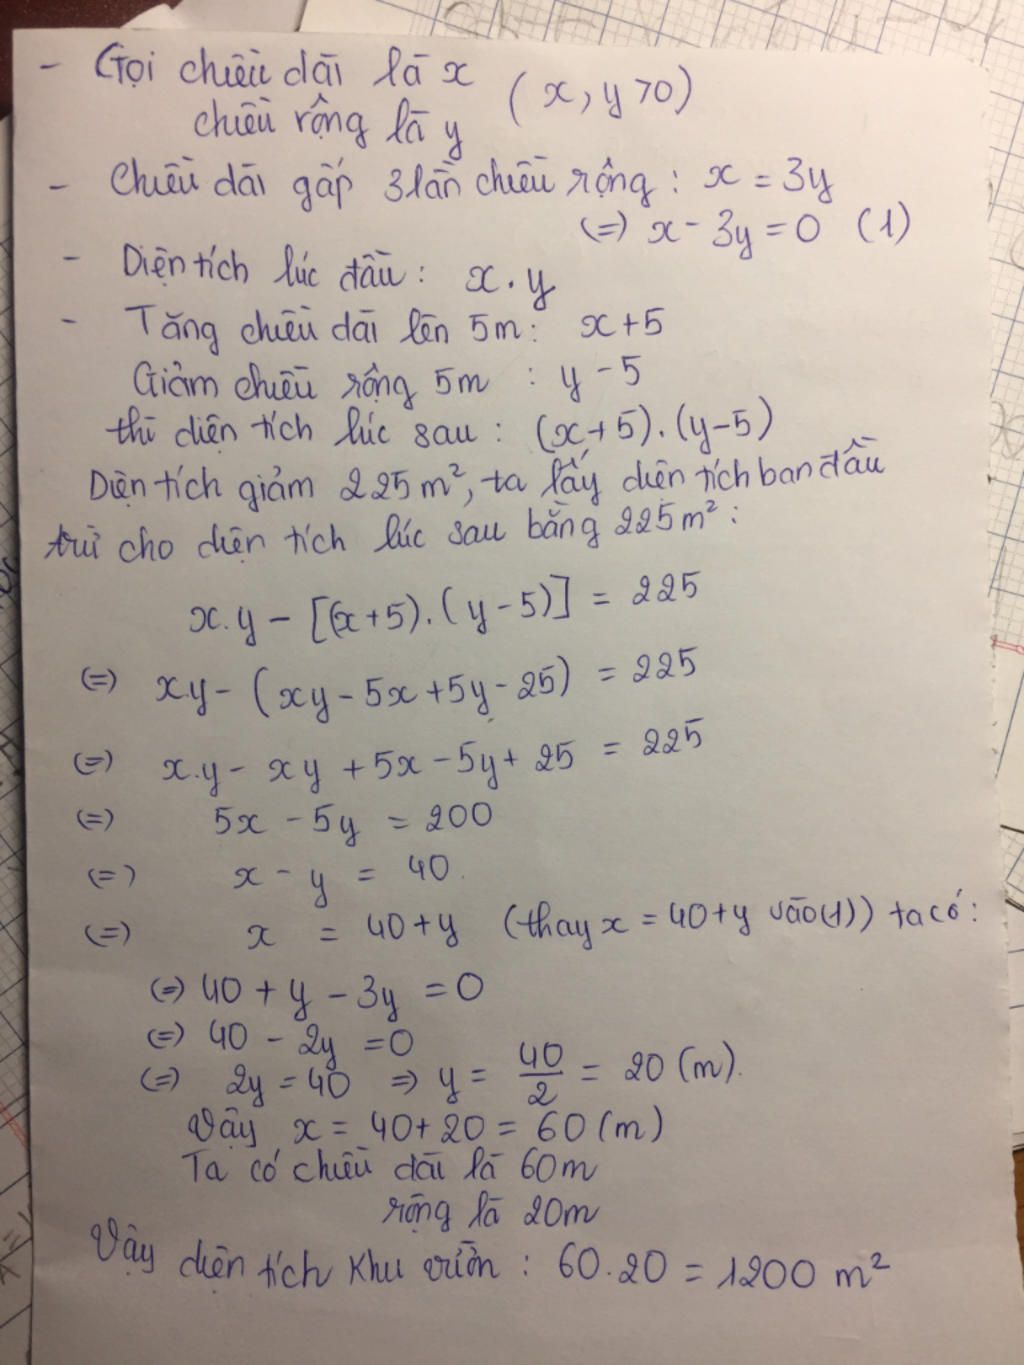 - Gọi chiều dài là x
chiều rộng là y (x, y > 0)
- Chiều dài gấp 3 lần chiều rộng : x = 3y
(=) x - 3y = 0 (1)
- Diện tích lúc đầu : x . y
- Tăng chiều dài lên 5m : x + 5
Giảm chiều rộng 5m : y - 5
thì diện tích lúc sau : (x+5).(y-5)
Diện tích giảm 225m², ta lấy diện tích ban đầu
trừ cho diện tích lúc sau bằng 225m² :
x.y - [(x+5).(y-5)] = 225
(=) x.y - (xy - 5x + 5y - 25) = 225
(=) x.y - xy + 5x - 5y + 25 = 225
(=) 5x - 5y = 200
(=) x - y = 40.
(=) x = 40 + y (thay x = 40 + y vào (1)) ta có :
(=) 40 + y - 3y = 0
(=) 40 - 2y = 0
(=) 2y = 40 => y = 40/2 = 20 (m).
Vậy x = 40 + 20 = 60 (m)
Ta có chiều dài là 60m
rộng là 20m
Vậy diện tích khu vườn : 60.20 = 1200 m²